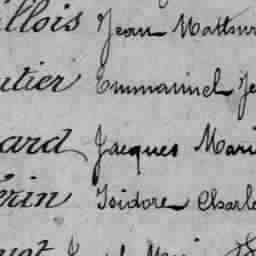 llois Jean Mathur
utier Emmanuel Je
ard Jacques Mari
érin Isidore Charle